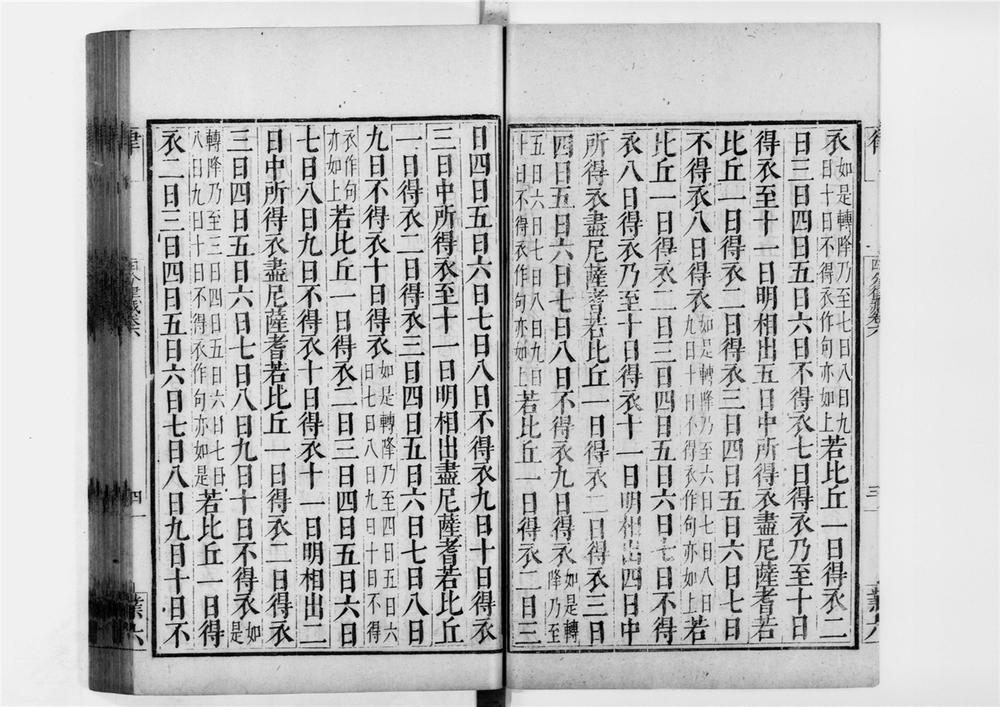 衣如是轉降乃至七日八日九日十日不得衣作句亦如上若比丘一日得衣二
日三日四日五日六日不得衣七日得衣乃至十日
得衣至十一日明相出五日中所得衣盡尼薩耆若
比丘一日得衣二日得衣三日四日五日六日七日
不得衣八日得衣如是轉降乃至六日七日八日九日十日不得衣作句亦如上若
比丘一日得衣二日三日四日五日六日七日不得
衣八日得衣乃至十日得衣十一日明相出四日中
所得衣盡尼薩耆若比丘一日得衣二日得衣三日
四日五日六日七日八日不得衣九日得衣如是轉降乃至
五日六日七日八日九日十日不得衣作句亦如上若比丘一日得衣二日三
日四日五日六日七日八日不得衣九日十日得衣
三日中所得衣至十一日明相出盡尼薩耆若比丘
一日得衣二日得衣三日四日五日六日七日八日
九日不得衣十日得衣如是轉降乃至四日五日六日七日八日九日十日不得
衣作句亦如上若比丘一日得衣二日三日四日五日六日
七日八日九日不得衣十日得衣十一日明相出二
日中所得衣盡尼薩耆若比丘一日得衣二日得衣
三日四日五日六日七日八日九日十日不得衣如是
轉降乃至三日四日五日六日七日八日九日十日不得衣作句亦如是若比丘一日得
衣二日三日四日五日六日七日八日九日十日不